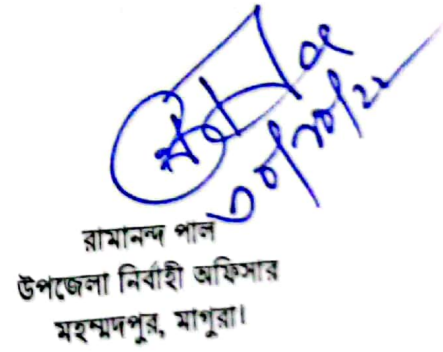 ৩০/১০/২২
রামানন্দ পাল
উপজেলা নির্বাহী অফিসার
মহম্মদপুর, মাগুরা।